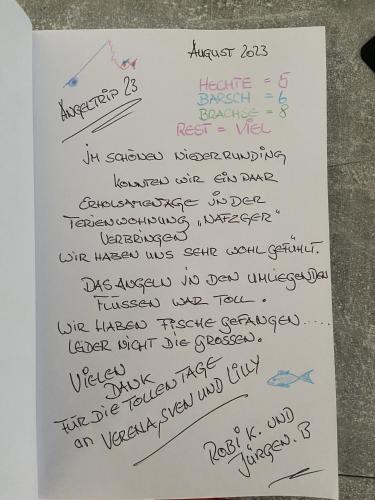 August 2023
Angeltrip 23
Hechte = 5
Barsch = 6
Brachse = 8
Rest = viel
Im schönen Niederrunding
konnten wir ein paar
erholsame Tage in der
Ferienwohnung „Nafzger"
verbringen
Wir haben uns sehr wohl gefühlt.
Das Angeln in den umliegenden
Flüssen war toll.
Wir haben Fische gefangen.....
Leider nicht die grossen.
Vielen
Dank
für die tollen Tage
an Verena, Sven und Lilly
Robi K. und
Jürgen. B